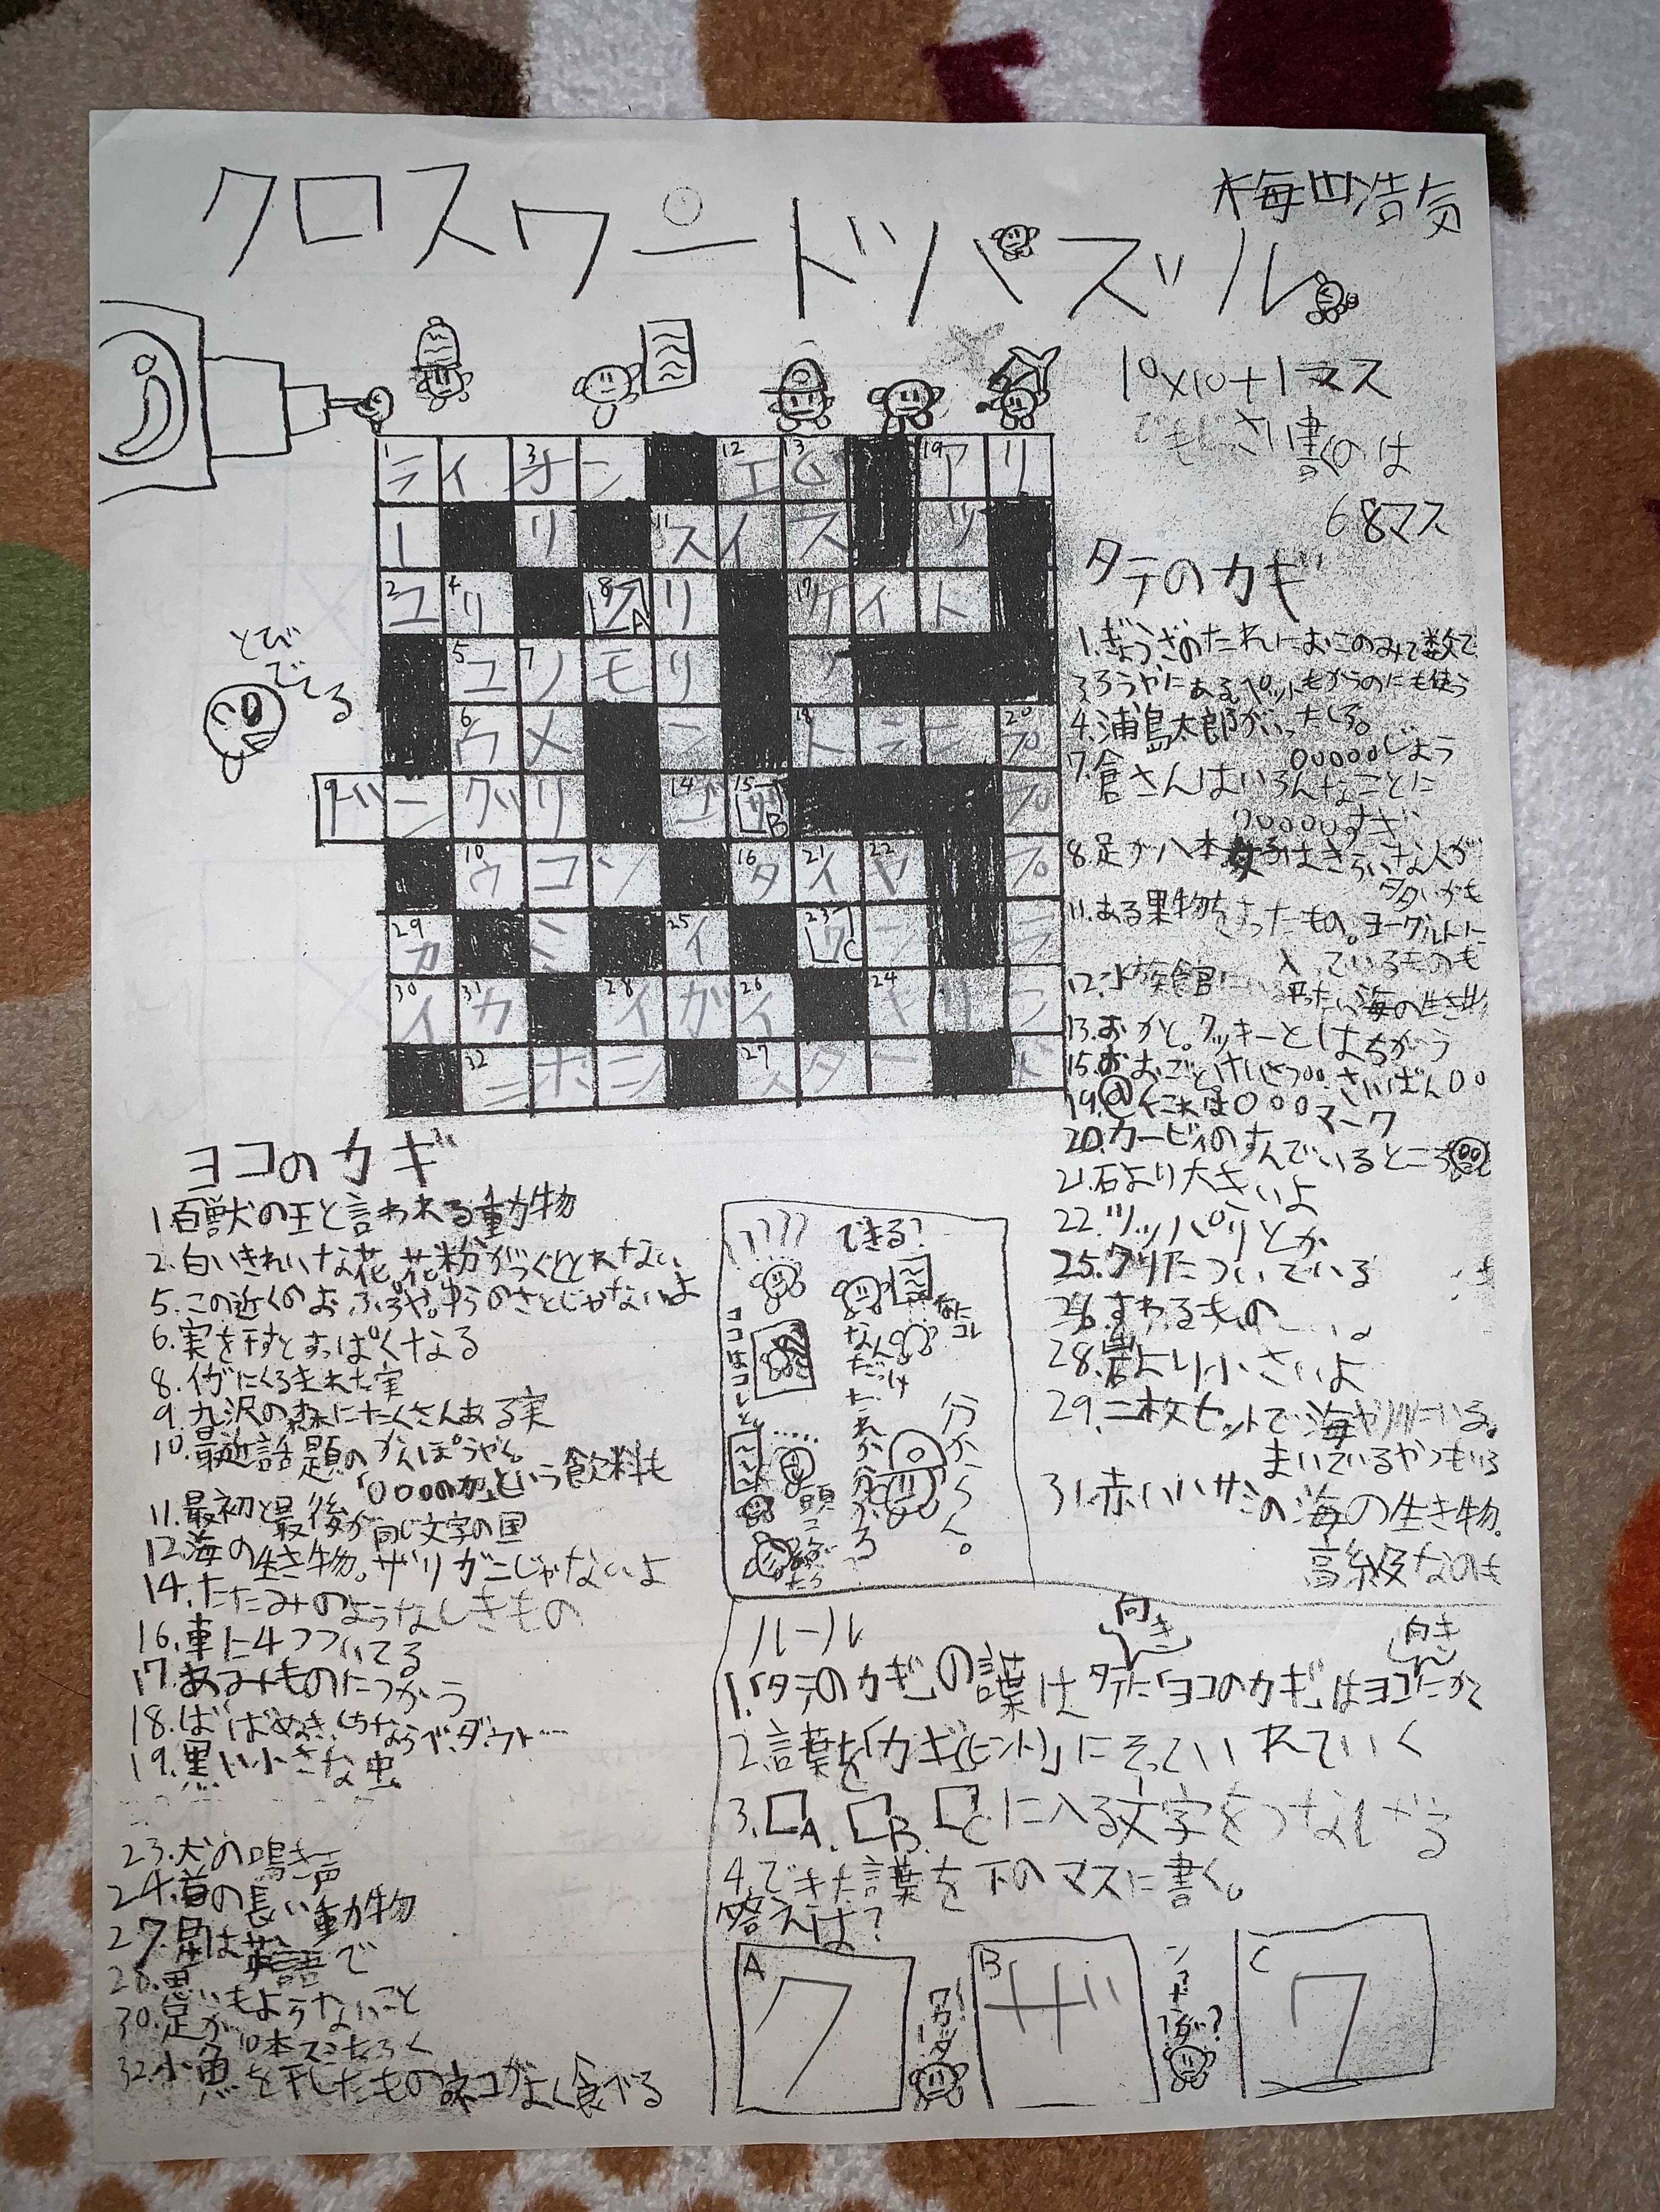 クロスワードパズル
梅田浩気
10×10+1マス
でもじっさい書くのは
68マス
とび
でてる
1ラ イ 3オ ン 12エ 13ビ 19ア リ
ー リ 11ス イ ス ッ
2ユ 4リ 8ク A リ 17ケ イ ト
5ユ 7ノ モ リ ッ
6ウ メ ン 18ト ラ ン 20プ
9ド ン グ リ 14ゴ 15ザ B プ
10ウ コ ン 16タ 21イ 22ヤ プ
29カ ミ 25イ 23ワ C ン ラ
30イ 31カ 28イ ガ 26イ 24キ リ ン
32ニ ボ シ 27ス タ ー ド
タテのカギ
1.ぎょうざのたれにおこのみで数て
3.ろうやにある。ペットをかうのにも使う
4.浦島太郎がいったところ。
○○○○○じょう
7.倉さんはいろんなことに
○○○○○すぎ
8.足が八本 女子はきらいな人が
多いかも
11.ある果物をすったもの。ヨーグルトに
入っているものも
12.水族館にいる平ったい海の生き物
13.おかし。クッキーとはちがう
15.おまごと けいさつ○○.さいばん○○
19.@←これは○○○マーク
20.カービィのすんでいるところ
21.石より大きいよ
22.ツッパリとか
25.クリについている
26.すわるもの
28.岩より小さいよ
29.二枚セットで海や川にいる。
まいているやつもいる
31.赤いハサミの海の生き物。
高級なのも
ヨコのカギ
1.百獣の王と言われる動物
2.白いきれいな花。花粉がつくととれない
5.この近くのおふろや。ゆらのさとじゃないよ
6.実を干すとすっぱくなる
8.イガにくるまれた実
9.九沢の森にたくさんある実
10.最近話題のかんぽうやく
「○○○の力」という飲料も
11.最初と最後が同じ文字の国
12.海の生き物。ザリガニじゃないよ
14.たたみのようなしきもの
16.車に4つついてる
17.あみものにつかう
18.ばばぬき.しちならべ.ダウト…
19.黒い小さな虫
23.犬の鳴き声
24.首の長い動物
27.星は英語で
28.思いもようないこと
30.足が10本スミをふく
32.小魚を干したものネコがよく食べる
????
できる?
なにコレ
なんだっけ
たれか分かる
ココはコレと
……
頭こんがらがった
分からん。
ルール
向き
向き
1.「タテのカギ」の言葉はタテに「ヨコのカギ」はヨコにかく
2.言葉を「カギ(ヒント)」にそっていれていく
3.□A.□B.□Cに入る文字をつなげる
4.できた言葉を下のマスに書く。
答えは?
A ク
B ザ
C ワ
ワカッタ!
ンナンダ?